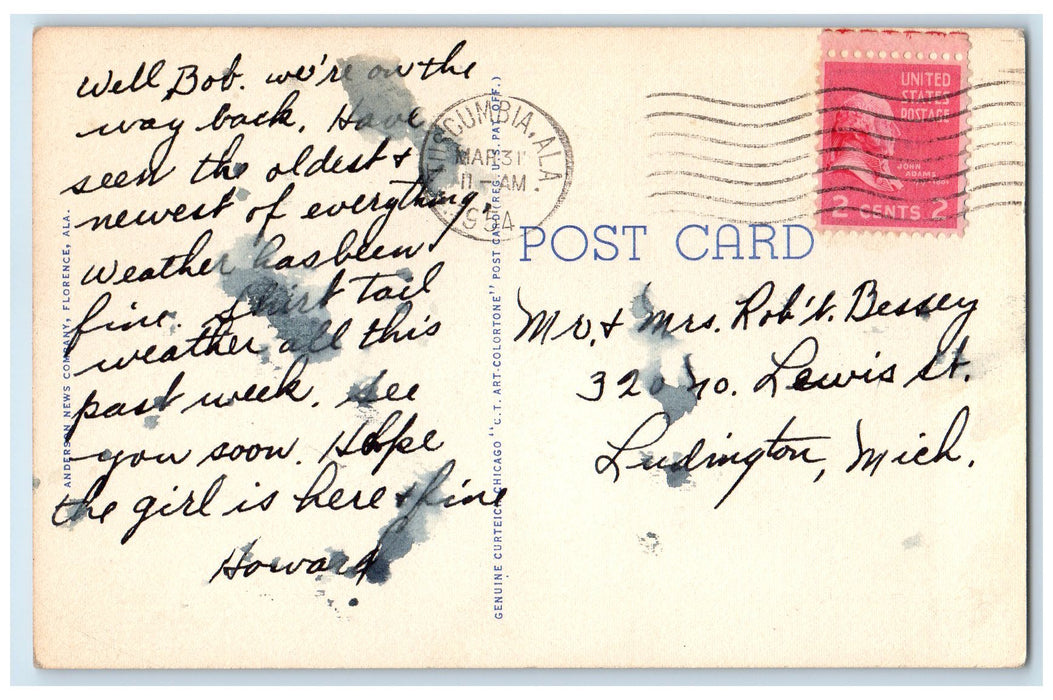 Well Bob. we're on the
way back. Have
seen the oldest +
newest of everything.
Weather has been
fine. Shirt tail
weather all this
past week. See
you soon. Hope
the girl is here & fine
Howard
ANDERSON NEWS COMPANY, FLORENCE, ALA.
GENUINE CURTEICH-CHICAGO "C.T. ART-COLORTONE" POST CARD (REG. U.S. PAT. OFF.)
TUSCUMBIA, ALA.
MAR 31
11 - AM
1954
UNITED
STATES
POSTAGE
JOHN
ADAMS
2 CENTS 2
POST CARD
Mr. + Mrs. Rob't. Bessey
320 Lewis St.
Ludington, Mich.